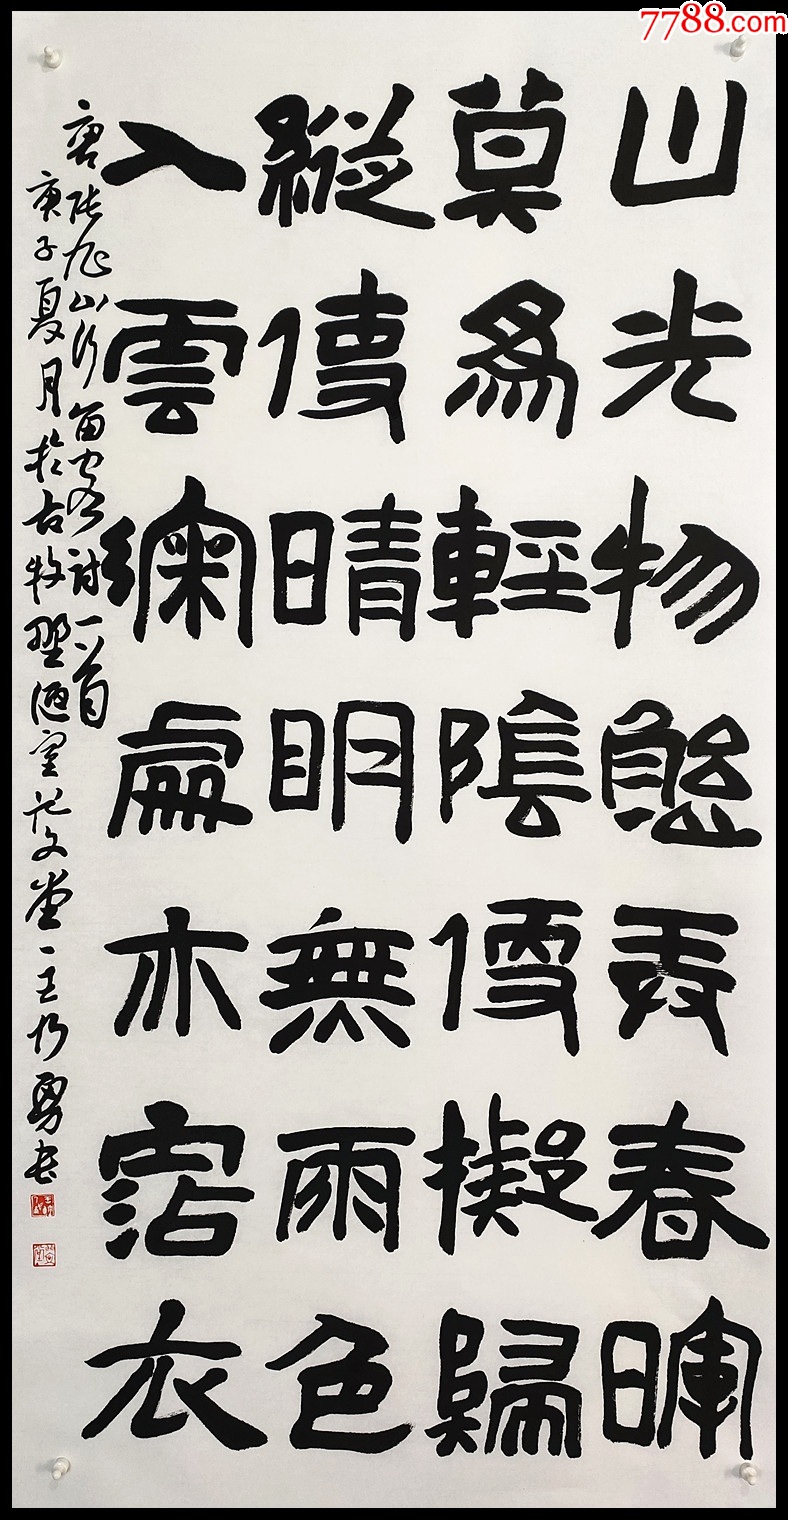 7788.com
山光物態弄春暉
莫為輕陰便擬歸
縱使晴明無雨色
入雲深處亦沾衣
唐张旭山行留客詩一首
庚子夏月於古牧野陋室文堂王勇书